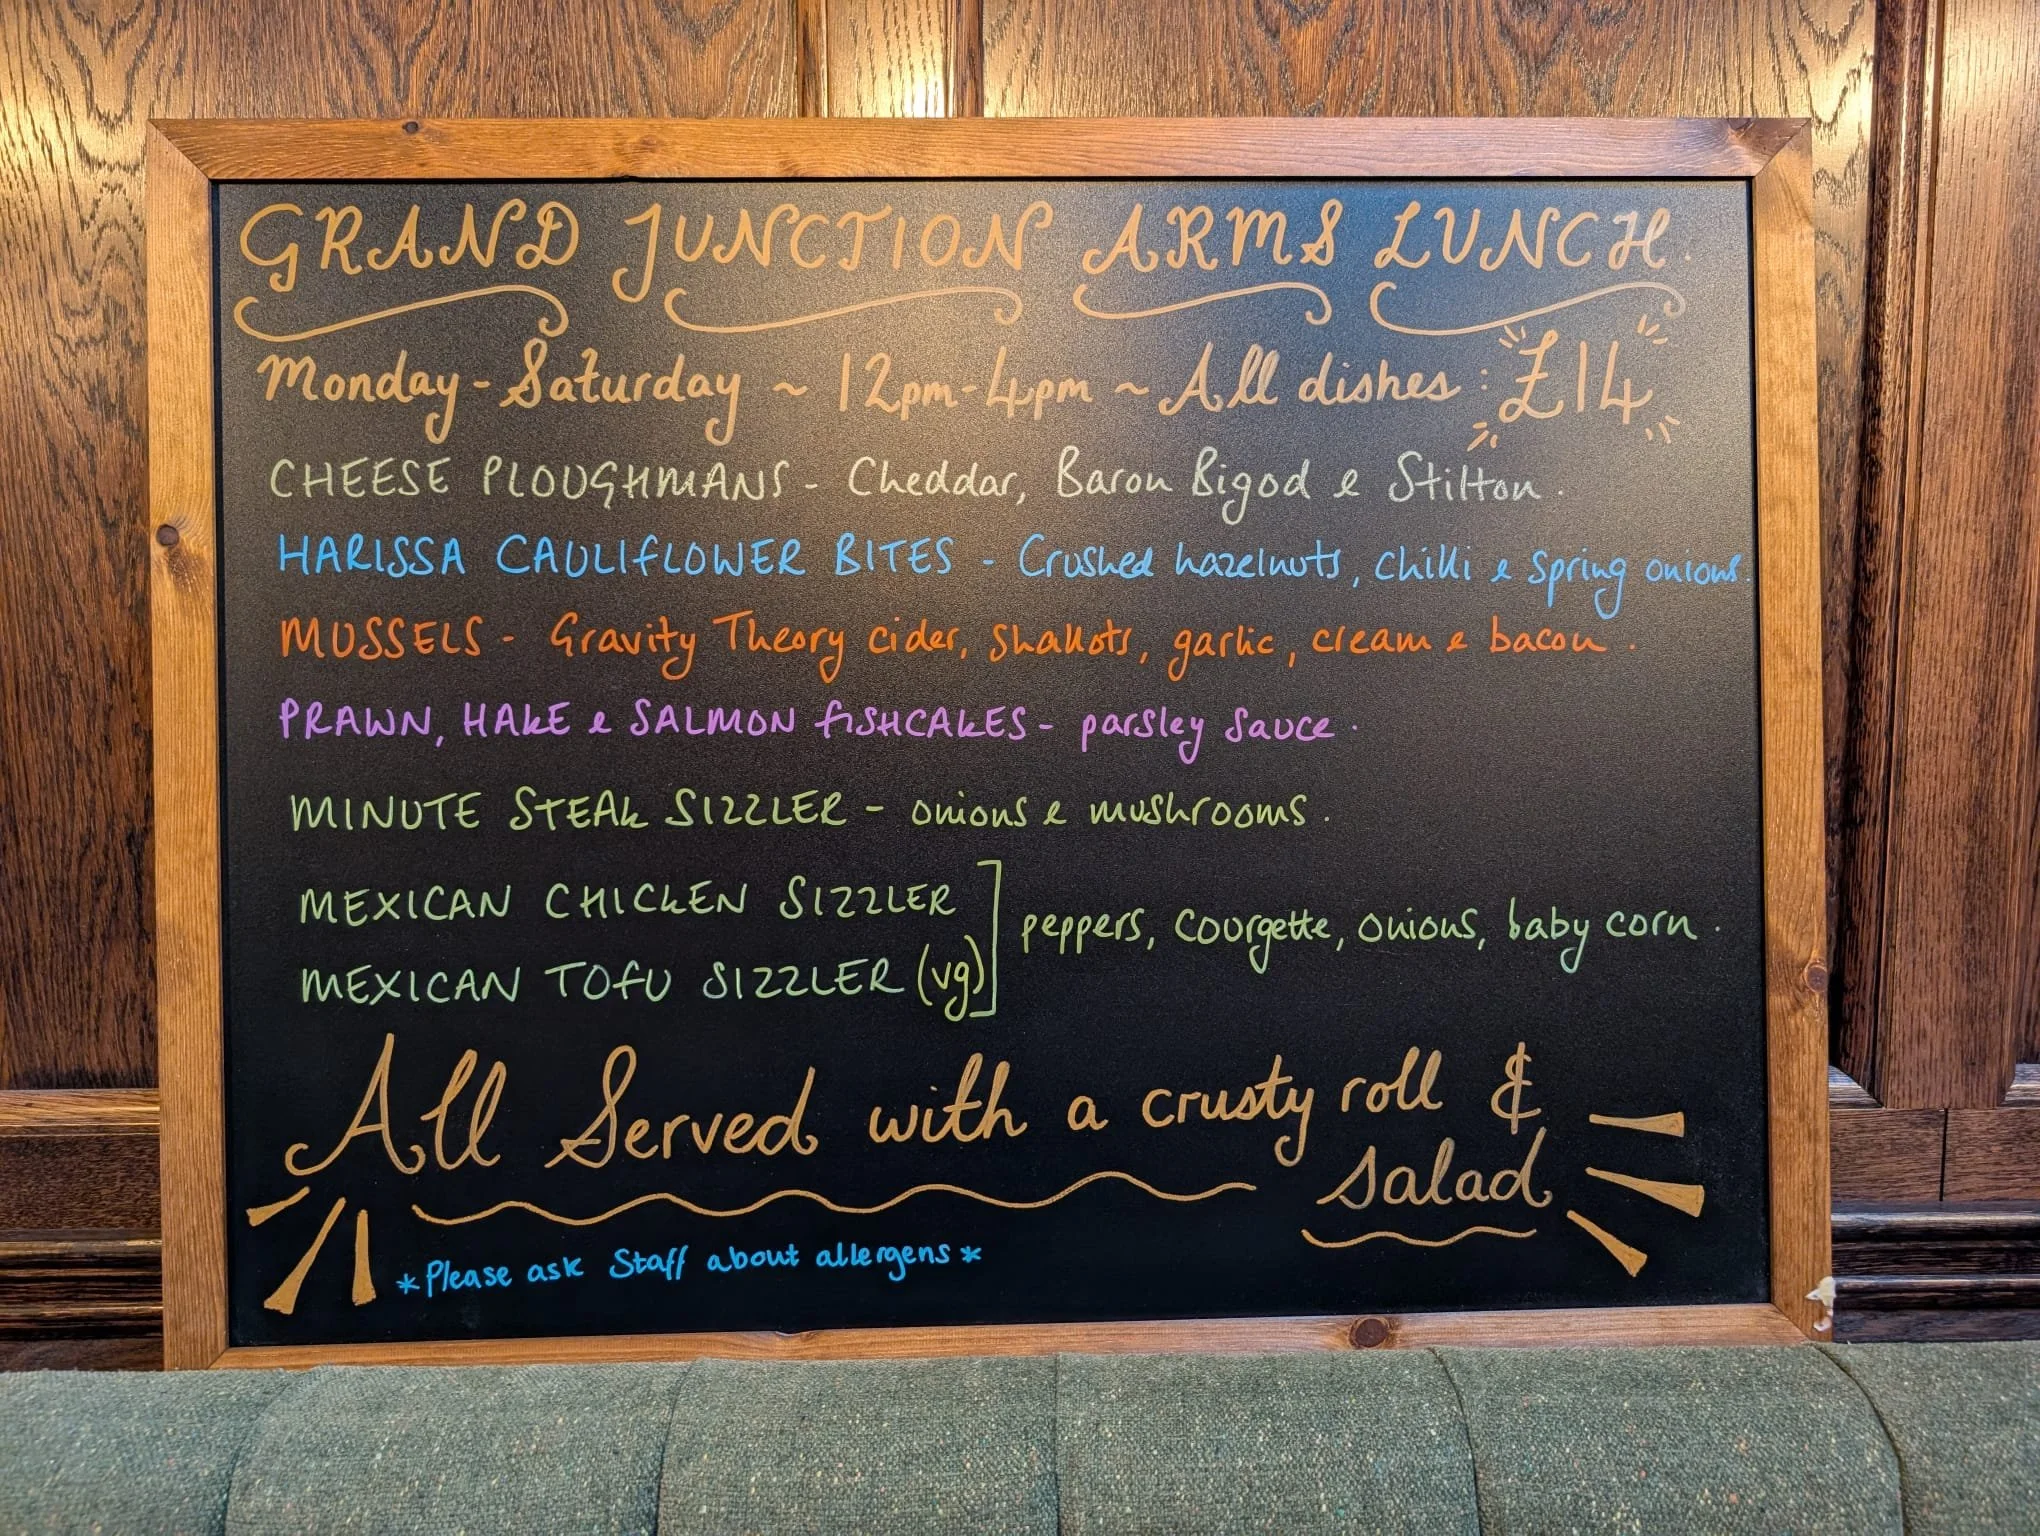 GRAND JUNCTION ARMS LUNCH.
Monday - Saturday ~ 12pm-4pm ~ All dishes : £14
CHEESE PLOUGHMANS - Cheddar, Baron Bigod & Stilton.
HARISSA CAULIFLOWER BITES - Crushed hazelnuts, chilli & spring onions.
MUSSELS - Gravity Theory cider, shallots, garlic, cream & bacon.
PRAWN, HAKE & SALMON FISHCAKES - parsley sauce.
MINUTE STEAK SIZZLER - onions & mushrooms.
MEXICAN CHICKEN SIZZLER
MEXICAN TOFU SIZZLER (vg)
peppers, courgette, onions, baby corn.
All Served with a crusty roll &
salad
*Please ask Staff about allergens*